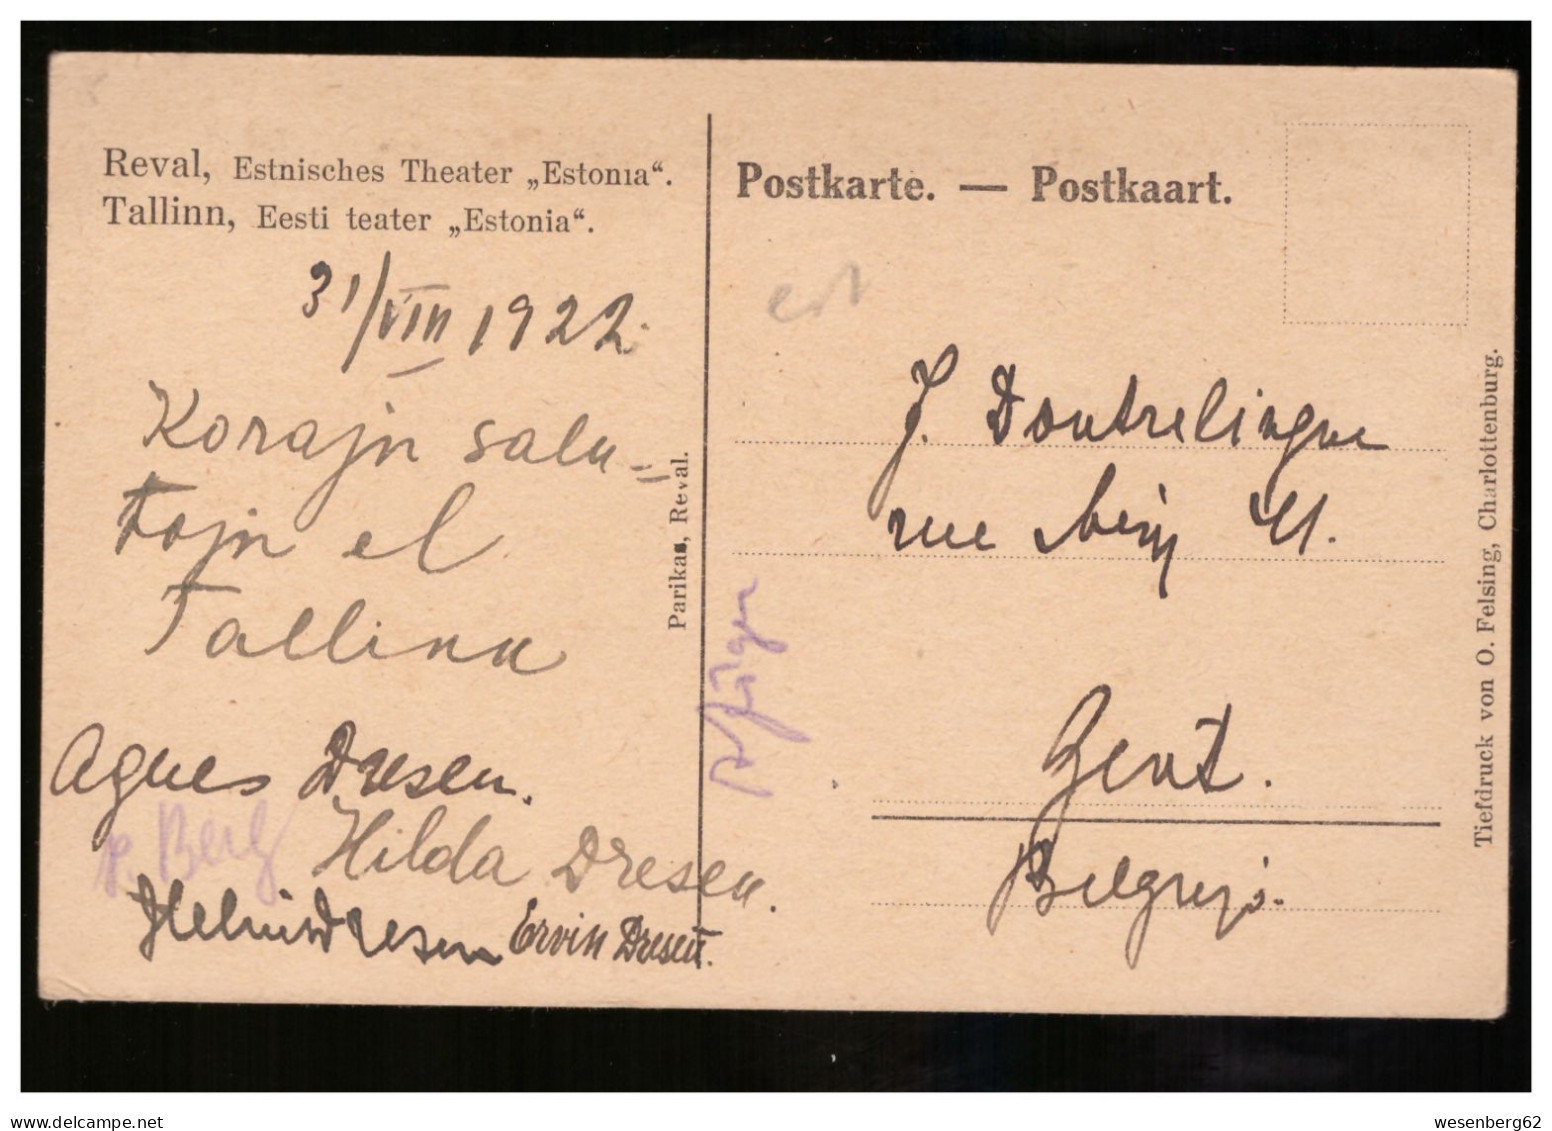 Reval, Estnisches Theater „Estonia“.
Tallinn, Eesti teater „Estonia“.
31/VIII 1922.
Korajn salu=
tojn el
Tallinn
Agnes Dresen.
P. Berg
Hilda Dresen.
Dresen
Ervin Dresen.
Parikas, Reval.
Postkarte. — Postkaart.
est
J. Doutrelingne
rue 41.
Gent.
Belgujo.
Tiefdruck von O. Felsing, Charlottenburg.
delcampe.net
wesenberg62